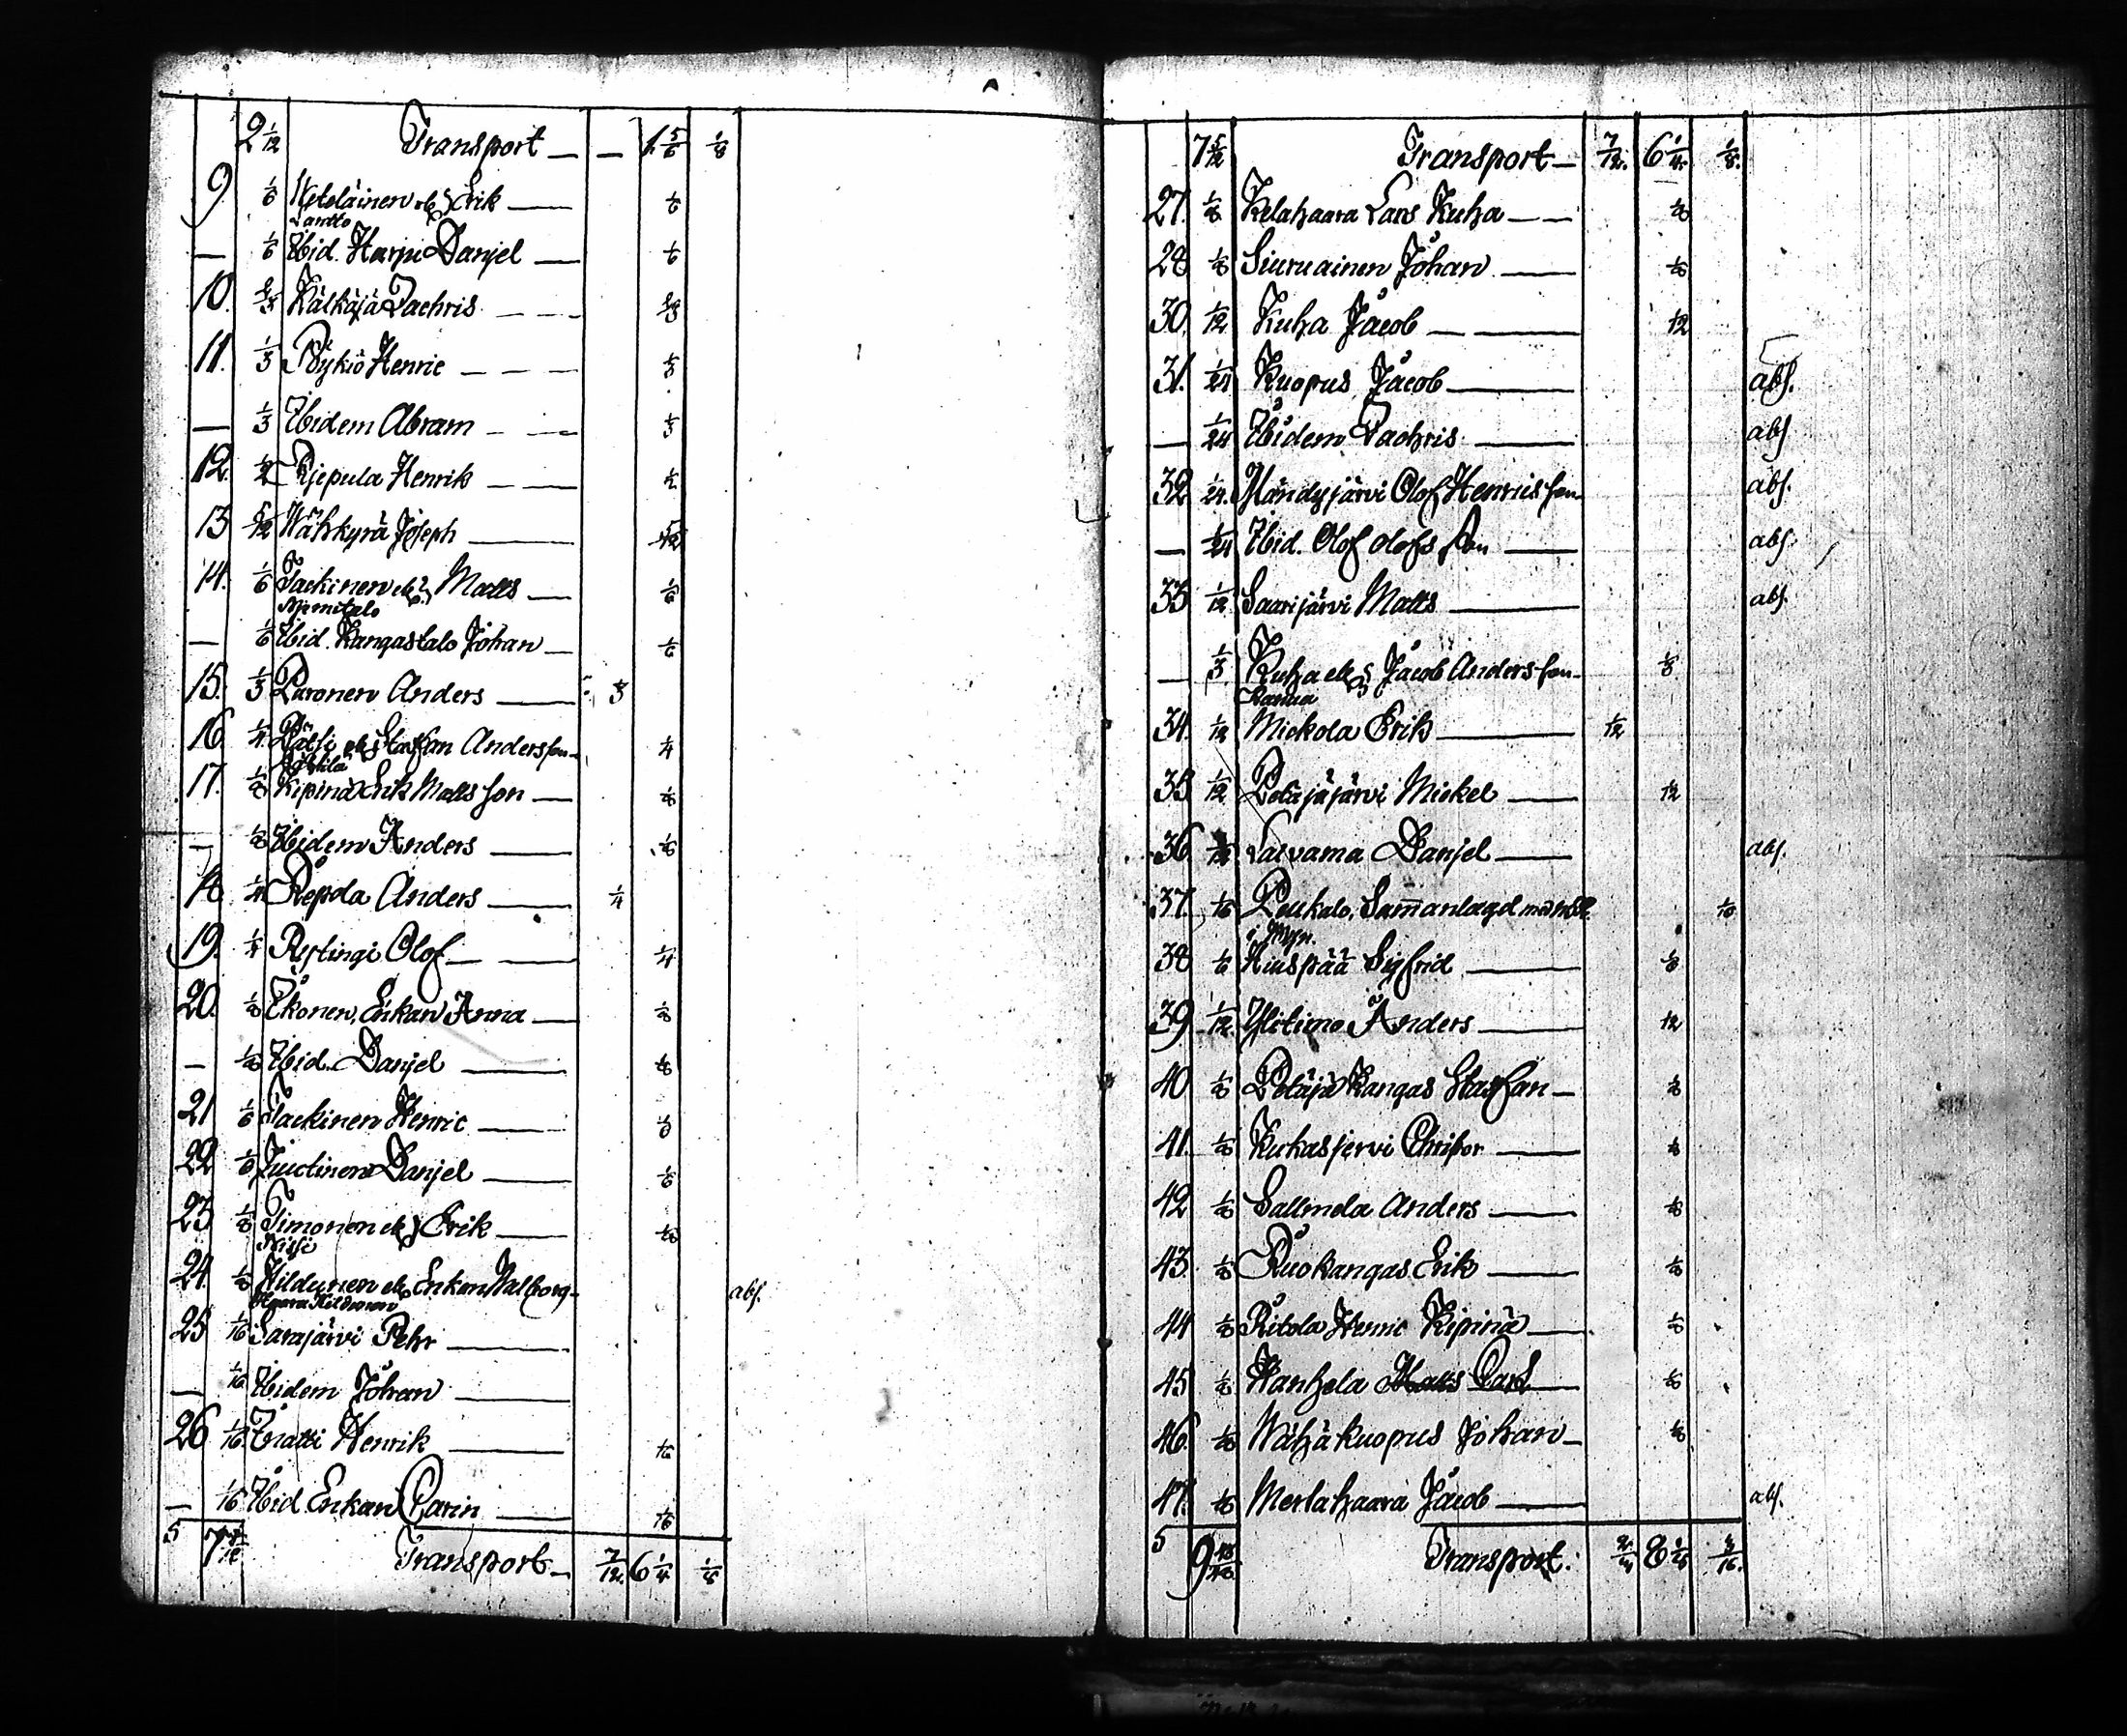 2 1/12 Transport — — 1 5/6 1/8
9. 1/6 Erik — 1/6
Lantto
— 1/6 Ibid. Harju Danjel — 1/6
10. Kälkäjä Zachris — —
11. 1/3 Pÿkiö Henric — — — 1/3
— 1/3 Ibidem Abram — — 1/3
12. 1/2 Rjepula Henrik — — 1/2
13 5/12 Wähkyrä Joseph — 5/12
14. 1/6 Tackinen Matts — 1/6
Njemitalo
— 1/6 Ibid. Kangastalo Johan — 1/6
15. 1/3 Paronen Anders — 1/3
16 1/4 Pätsi Staffan Andersson — 1/4
17. 1/8 Kipinä Erik Mattsson — 1/8
— 1/8 Ibidem Anders — 1/8
18 1/4 Repola Anders — 1/4
19. 1/4 Olof — 1/4
20. 1/8 Ekonen, Enkan Anna — 1/8
— 1/8 Ibid. Danjel — 1/8
21 1/6 Tackinen Henric — 1/6
22 1/6 Juutinen Danjel — 1/6
23 1/8 Timonen Erik — 1/8
Nissi
24. 1/8 Hildunen Enkan Walborg — abs.
Hildunen
25 1/16 Sarajärvi Pehr —
— 1/16 Ibidem Johan —
26 1/16 Tratti Henrik — 1/16
— 1/16 Ibid. Enkan Carin — 1/16
5 7 5/12 Transport — 7/12 6 1/4 1/8
7 5/12 Transport — 7/12. 6 1/4. 1/8.
27. 1/8 Kelahaara Lars Kuha — 1/8
28 1/8 Siuruainen Johan — 1/8
30. 1/12 Kuha Jacob — 1/12
31. 1/24 Kuopus Jacob — abs.
— 1/24 Ibidem Zachris — abs
32 1/24. Mändyjärvi Olof Henricsson abs.
— 1/24 Ibid. Olof Olofsson — abs.
33 1/12 Saarijärvi Matts — abs.
— 1/3 Kuha Jacob Andersson — 1/3
34. 1/12 Mickola Erik — 1/12
35 1/12 Petäjäjärvi Mickel — 1/12
36 Danjel — abs.
37. 1/16 Peukalo, Sam̄anlagd med 1/16
38 1/6 Hiuspää Sigfrid — 1/6
39 1/12 Ylitimo Anders — 1/12
40 1/8 Petäjä Kangas Staffan — 1/8
41. 1/8 Kukasjervi Christer — 1/8
42 1/8 Sallmela Anders — 1/8
43. 1/8 Ruokangas Erik — 1/8
44 1/8 Ritola Henric Kipinä — 1/8
45 1/8 Wanhela Matts Carl — 1/8
46. 1/8 Wähäkuopus Johan — 1/8
47. 1/8 Merlahaara Jacob — abs.
5 9 Transport. 8 3/16.